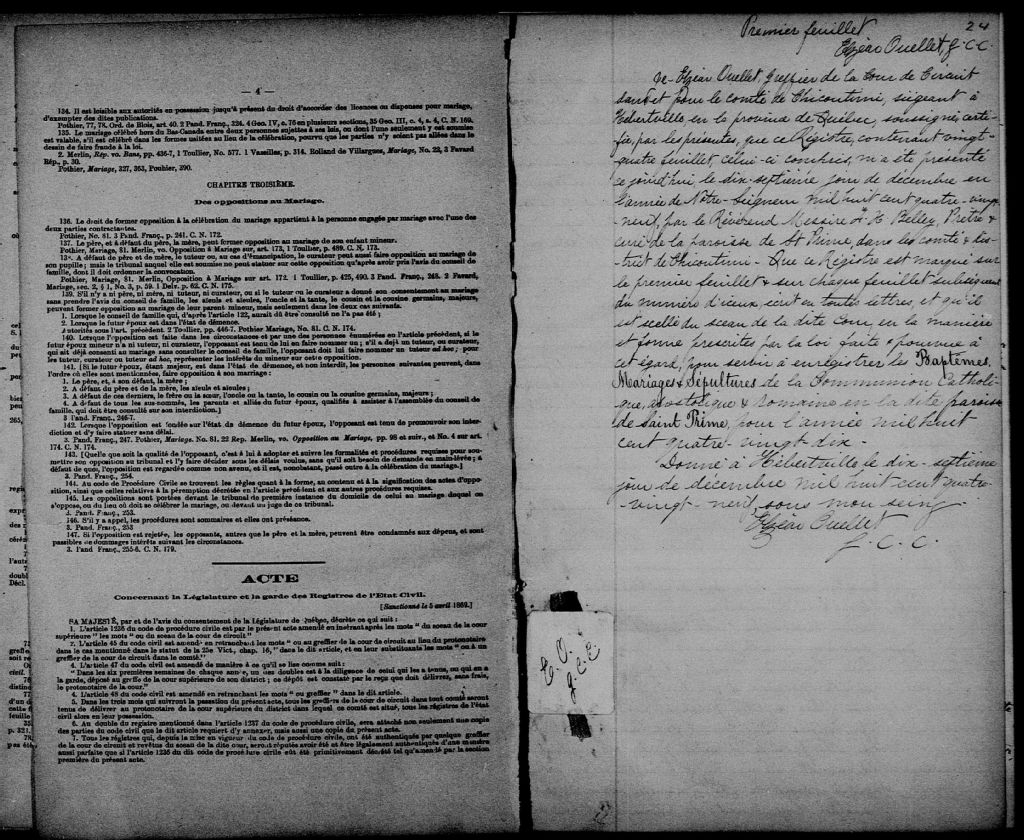 — 4 —
134. Il est loisible aux autorités en possession jusqu'à présent du droit d'accorder des licences ou dispenses pour mariage,
d'exempter des dites publications.
Pothier, 77, 78. Ord. de Blois, art. 40. 2 Pand. Franç., 324. 4 Geo. IV, c. 75 en plusieurs sections, 35 Geo. III, c. 4, s. 4, C. N. 169.
135. Le mariage célébré hors du Bas-Canada entre deux personnes sujettes à ses lois, ou dont l'une seulement y est soumise
est valable, s'il est célébré dans les formes usitées au lieu de la célébration, pourvu que les parties n'y soient pas allées dans le
dessin de faire fraude à la loi.
2. Merlin, Rép. vo. Bans, pp. 436-7, 1 Toullier, No. 577. 1 Vazeilles, p. 314. Rolland de Villargues, Mariage, No. 22, 3 Favard
Rép., p. 30.
Pothier, Mariage, 327, 363, Pouhier, 390.
CHAPITRE TROISIÈME.
Des oppositions au Mariage.
136. Le droit de former opposition à la célébration du mariage appartient à la personne engagée par mariage avec l'une des
deux parties contractantes.
Pothier, No. 81. 3 Pand. Franç., p. 241. C. N. 172.
137. Le père, et à défaut du père, la mère, peut former opposition au mariage de son enfant mineur.
Pothier, Mariage, 81. Merlin, vo. Opposition à Mariage sur, art. 173, 1 Toullier, p. 489. C. N. 173.
138. A défaut de père et de mère, le tuteur ou, au cas d'émancipation, le curateur peut aussi faire opposition au mariage de
son pupille; mais le tribunal auquel elle est soumise ne peut statuer sur cette opposition qu'après avoir pris l'avis du conseil de
famille, dont il doit ordonner la convocation.
Pothier, Mariage, 81. Merlin, Opposition à Mariage sur art. 172. 1 Toullier, p. 425, 490. 3 Pand. Franç., 248. 2 Favard,
Mariage, sec. 2, § 1, No. 3, p. 59. 1 Delv. p. 62. C. N. 175.
139. S'il n'y a ni père, ni mère, ni tuteur, ni curateur, ou si le tuteur ou le curateur a donné son consentement au mariage
sans prendre l'avis du conseil de famille, les aïeuls et aïeules, l'oncle et la tante, le cousin et la cousine germains, majeurs,
peuvent former opposition au mariage de leur parent mineur, mais seulement dans les deux cas suivants.
1. Lorsque le conseil de famille qui, d'après l'article 122, aurait dû être consulté ne l'a pas été;
2. Lorsque le futur époux est dans l'état de démence.
Autorités sous l'art. précédent. 2 Toullier, pp. 446-7. Pothier Mariage, No. 81. C. N. 174.
140. Lorsque l'opposition est faite dans les circonstances et par une des personnes énumérées en l'article précédent, si le
futur époux mineur n'a ni tuteur, ni curateur, l'opposant est tenu de lui en faire nommer un; s'il a déjà un tuteur, ou curateur,
qui ait déjà consenti au mariage sans consulter le conseil de famille, l'opposant doit lui faire nommer un tuteur ad hoc; pour
les tuteur, curateur ou tuteur ad hoc, représenter les intérêts du mineur sur cette opposition.
141. [Si le futur époux, étant majeur, est dans l'état de démence, et non interdit, les personnes suivantes peuvent, dans
l'ordre où elles sont mentionnées, faire opposition à son mariage:
1. Le père, et, à son défaut, la mère;
2. A défaut du père et de la mère, les aïeuls et aïeules;
3. A défaut de ces derniers, le frère ou la sœur, l'oncle ou la tante, le cousin ou la cousine germains, majeurs;
4. A défaut de tous les sus-nommés, les parents et alliés du futur époux, qualifiés à assister à l'assemblée du conseil de
famille, qui doit être consulté sur son interdiction.]
3 Pand. Franç., 246-7.
142. Lorsque l'opposition est fondée sur l'état de démence du futur époux, l'opposant est tenu de promouvoir son inter-
diction et d'y faire statuer sans délai.
3. Pand. Franç., 247. Pothier, Mariage. No. 81. 22 Rep. Merlin, vo. Opposition au Mariage, pp. 98 et suiv., et No. 4 sur art.
174. C. N. 174.
143. [Quelle que soit la qualité de l'opposant, c'est à lui à adopter et suivre les formalités et procédures requises pour sou-
mettre son opposition au tribunal et l'y faire décider sous les délais voulus, sans qu'il soit besoin de demande en main-levée; à
défaut de quoi, l'opposition est regardée comme non avenu, et il est, nonobstant, passé outre à la célébration du mariage.]
3. Pand. Franç., 254.
144. Au code de Procédure Civile se trouvent les règles quant à la forme, au contenu et à la signification des actes d'oppo-
sition, ainsi que celles relatives à la péremption décrétée en l'article précédent et aux autres procédures requises.
145. Les oppositions sont portées devant le tribunal de première instance du domicile de celui au mariage duquel on
s'oppose, ou du lieu où doit se célébrer le mariage, ou devant un juge de ce tribunal.
3. Pand. Franç., 253.
146. S'il y a appel, les procédures sont sommaires et elles ont préséance.
3. Pand. Franç., 253
147. Si l'opposition est rejetée, les opposants, autres que le père et la mère, peuvent être condamnés aux dépens, et sont
passibles de dommages intérêts suivant les circonstances.
3. Pand. Franç., 255-6. C. N. 179.
ACTE
Concernant la Législature et la garde des Registres de l'Etat Civil.
[Sanctionné le 5 avril 1869.]
SA MAJESTÉ, par et de l'avis du consentement de la Législature de Québec, décrète ce qui suit:
1. L'article 1236 du code de procédure civile est par le présent acte amendé en insérant après les mots "du sceau de la cour
supérieure" les mots "ou du sceau de la cour de circuit"
2. L'article 45 du code civil est amendé en retranchant les mots "ou au greffier de la cour de circuit au lieu du protonotaire
dans le cas mentionné dans le statut de la 25e Vict., chap. 16," dans le dit article, et en leur substituants les mots "ou à un
greffier de la cour de circuit dans le comté."
4. L'article 47 du code civil est amendé de manière à ce qu'il se lise comme suit:
"Dans les six premières semaines de chaque année, un des doubles est à la diligence de celui qui les a tenus, ou qui en a
la garde, déposé au greffe de la cour supérieure de son district; ce dépôt est constaté par le reçu que doit délivrer, sans frais,
le protonotaire de la cour."
4. L'article 48 du code civil est amendé en retranchant les mots "ou greffier" dans le dit article.
5. Dans les trois mois qui suivront la passation du présent acte, tous les greffiers de la cour de circuit dans tout comté seront
tenus de délivrer au protonotaire de la cour supérieure du district dans lequel un comté est situé, tous les registres de l'état
civil alors en leur possession.
6. Au double du registre mentionné dans l'article 1237 du code de procédure civile, sera attaché non seulement une copie
des parties du code civil que le dit article requiert d'y annexer, mais aussi une copie du présent acte.
7. Tous les régistres qui, depuis la mise en vigueur du code de procédure civile, ont été authentiqués par quelque greffier
de la cour de circuit et revêtus du sceau de la dite cour, seront réputés avoir été et être légalement authentiqués d'une manière
aussi parfaite que si l'article 1236 du dit code de procédure civile eût été primitivement décrété tel qu'amendé par la section
première du présent acte.
24
Premier feuillet
Elzéar Ouellet, G.C.C.
Je Elzéar Ouellet, Greffier de la Cour de Circuit
dans et pour le comté de Chicoutimi, siégeant à
Hébertville en la province de Québec, soussigné certi-
fie, par les présentes, que ce Régistre, contenant vingt-
quatre feuillet, celui-ci compris, m'a été présenté
ce jourd'hui, le dix-septième jour de décembre en
l'année de Notre-Seigneur mil huit cent quatre-vingt
-neuf, par le Révérend Messire H. Belley, Prêtre &
curé de la paroisse de St Prime, dans les comté & dis-
trict de Chicoutimi - Que ce Régistre est marqué sur
le premier feuillet & sur chaque feuillet subséquent
du numéro d'iceux écrit en toutes lettres, et qu'il
est scellé du sceau de la dite Cour, en la manière
et forme prescrites par la loi faite & pourvue à
cet égard, pour servir à enregistrer les Baptêmes,
Mariages & Sépultures de la Communion Catholi-
que, apostolique & romaine en la dite paroisse
de Saint Prime, pour l'année mil huit
cent quatre-vingt dix -
Donné à Hébertville le dix-septième
jour de décembre mil huit cent quatre-
-vingt-neuf, sous mon seing
Elzéar Ouellet
G. C. C.
E. O.
G. C. C.